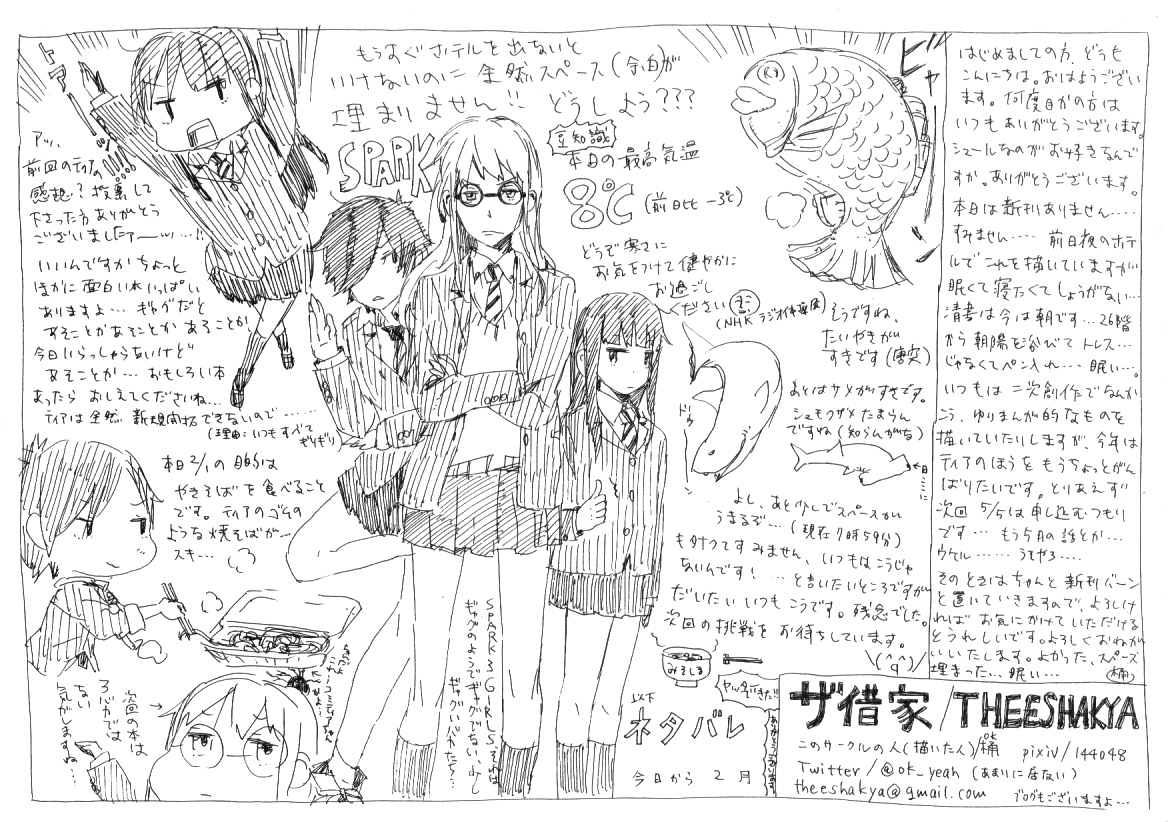 もうすぐホテルを出ないと
いけないのに全然スペース(余白)が
埋まりません!! どうしよう???
SPARK
豆知識
本日の最高気温
8℃(前日比 -3℃)
どうぞ寒さに
お気をつけて健やかに
お過ごし
ください
(NHK ラジオ体操風)
トァーッ!!!!!
アッ、
前回のティアの
感想?投票して
下さった方ありがとう
ございましたァーッッ…!!
いいんですかちょっと
ほかに面白い本いっぱい
ありますよ… ギャグだと
あそことかあそことか あそことか
今日いらっしゃらないけど
あそことか… おもしろい本
あったら おしえてくださいね…
ティアは全然 新規開拓できないので……
(理由:いつもすべて
ギリギリ)
本日2/1の目的は
やきそばを食べること
です。ティアのゴミの
ような焼そばが…
スキ…
次の本は
メガネでは
ない
気がしますね…
SPARK 3 GIRLS それは
ギャグのようでギャグでない、少し
ギャグっぽいなにか…
ビャッ
そうですね、
たいやきが
すきです(唐突)
あとはサメがすきです。
シュモクザメたまらん
ですね(知らんがな)
←目
ここに
よし、あと少しでスペースが
うまるぞ…(現在7時59分)
もタイクですみません、いつもはこうじゃ
ないんです! …と言いたいところですが
だいたいいつもこうです。残念でした。
次回の挑戦をお待ちしています。
\(^q^)/
みそしる
ヤッタ!できた!
以下
ネタバレ
今日から 2月
はじめましての方、どうも
こんにちは。おはようござい
ます。何度目かの方は
いつもありがとうございます。
シュールなのがお好きなんで
すか。ありがとうございます。
本日は新刊ありません….
すみません…. 前日夜のホテ
ルでこれを描いていますが
眠くて寝たくてしょうがない…
清書は今は朝です…26階
から朝陽を浴びてトレス…
じゃなくてペン入れ… 眠い…。
いつもは二次創作でなんか
こう、ゆりまんが的なものを
描いていたりしますが、今年は
ティアのほうをもうちょっとがん
ばりたいです。とりあえず
次回 5/5は申し込むつもり
です… もう5月の話とか…
ウケル…… うてやろ….
そのときはちゃんと新刊バーン
と置いていきますので、よろしけ
ればお気にかけていただける
とうれしいです。よろしくおねが
いいたします。よかった、スペース
埋まった… 眠い… (桶)
ザ借家/THEESHAKYA
このサークルの人(描いた人)/桶 pixiv/144048
Twitter/@ok_yeah (あまりに居ない)
theeshakya@gmail.com ブログもございますよ…